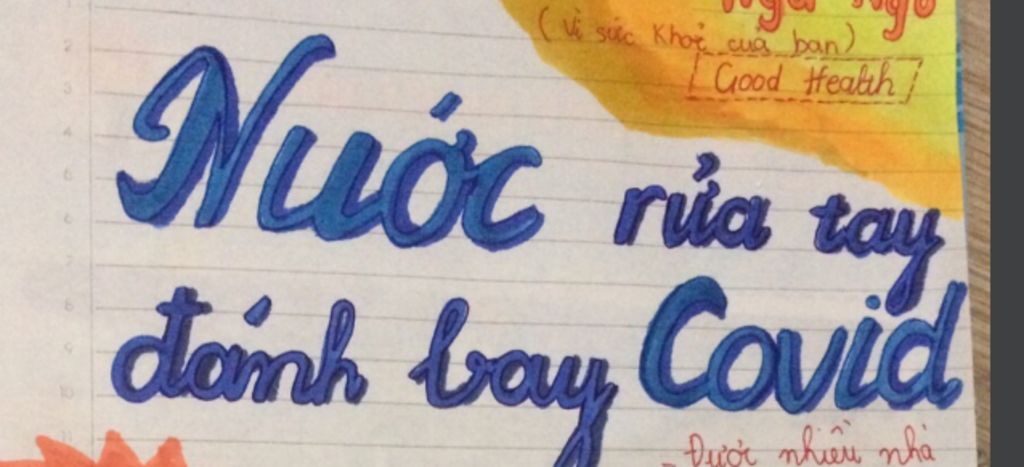 (Vì sức khoẻ của bạn)
Good Health
Nước rửa tay
đánh bay Covid
- Được nhiều nhà